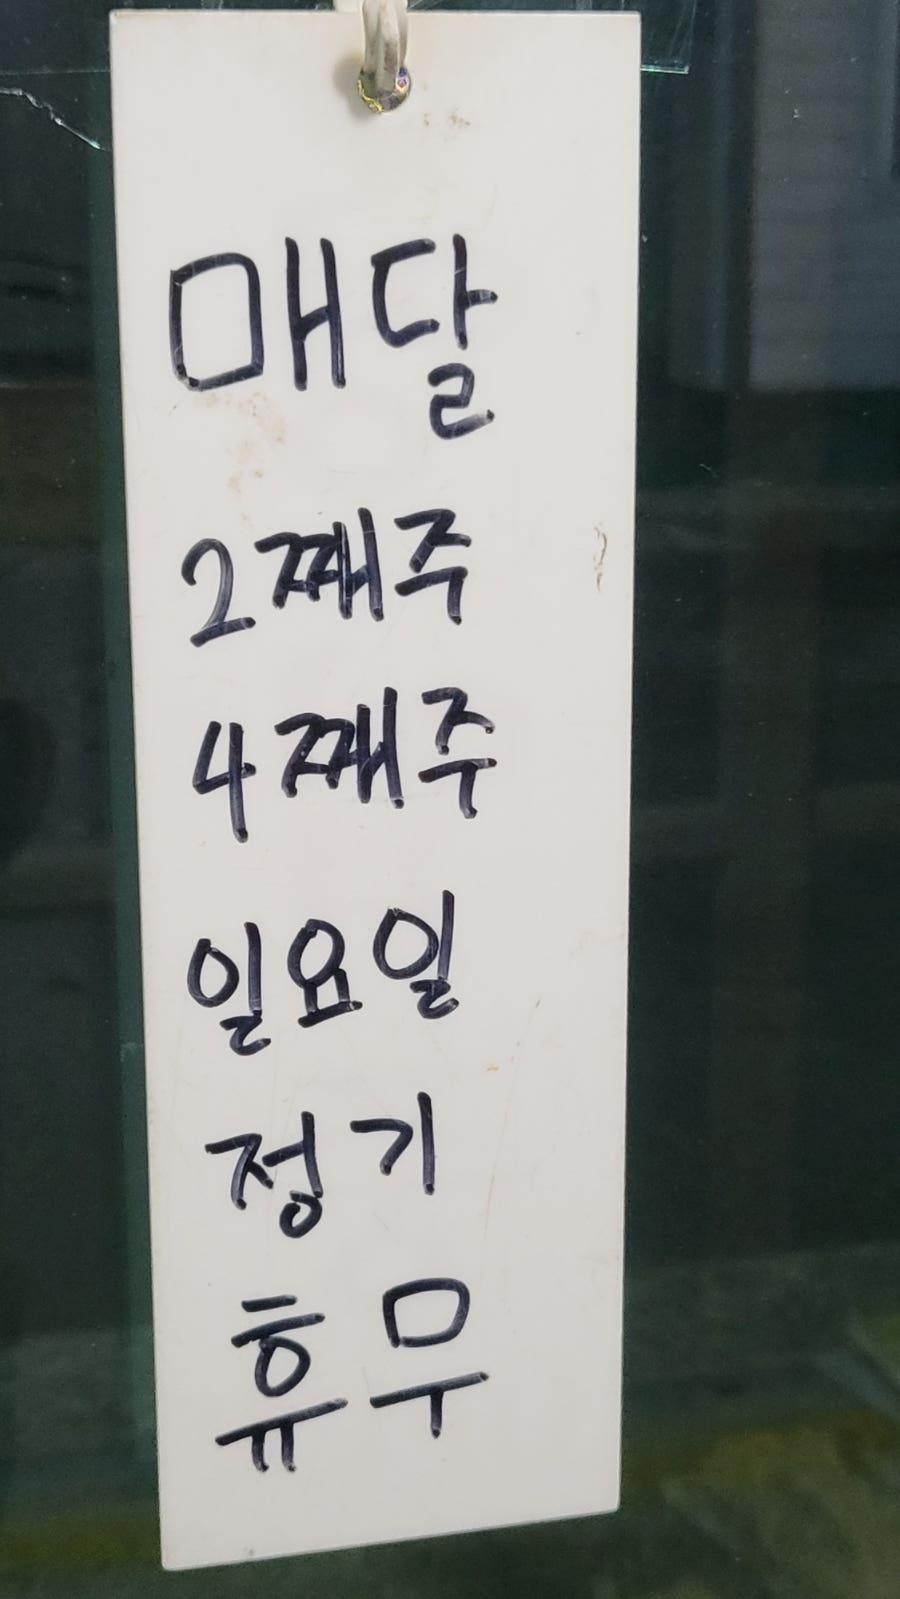 매달
2째주
4째주
일요일
정기
휴무